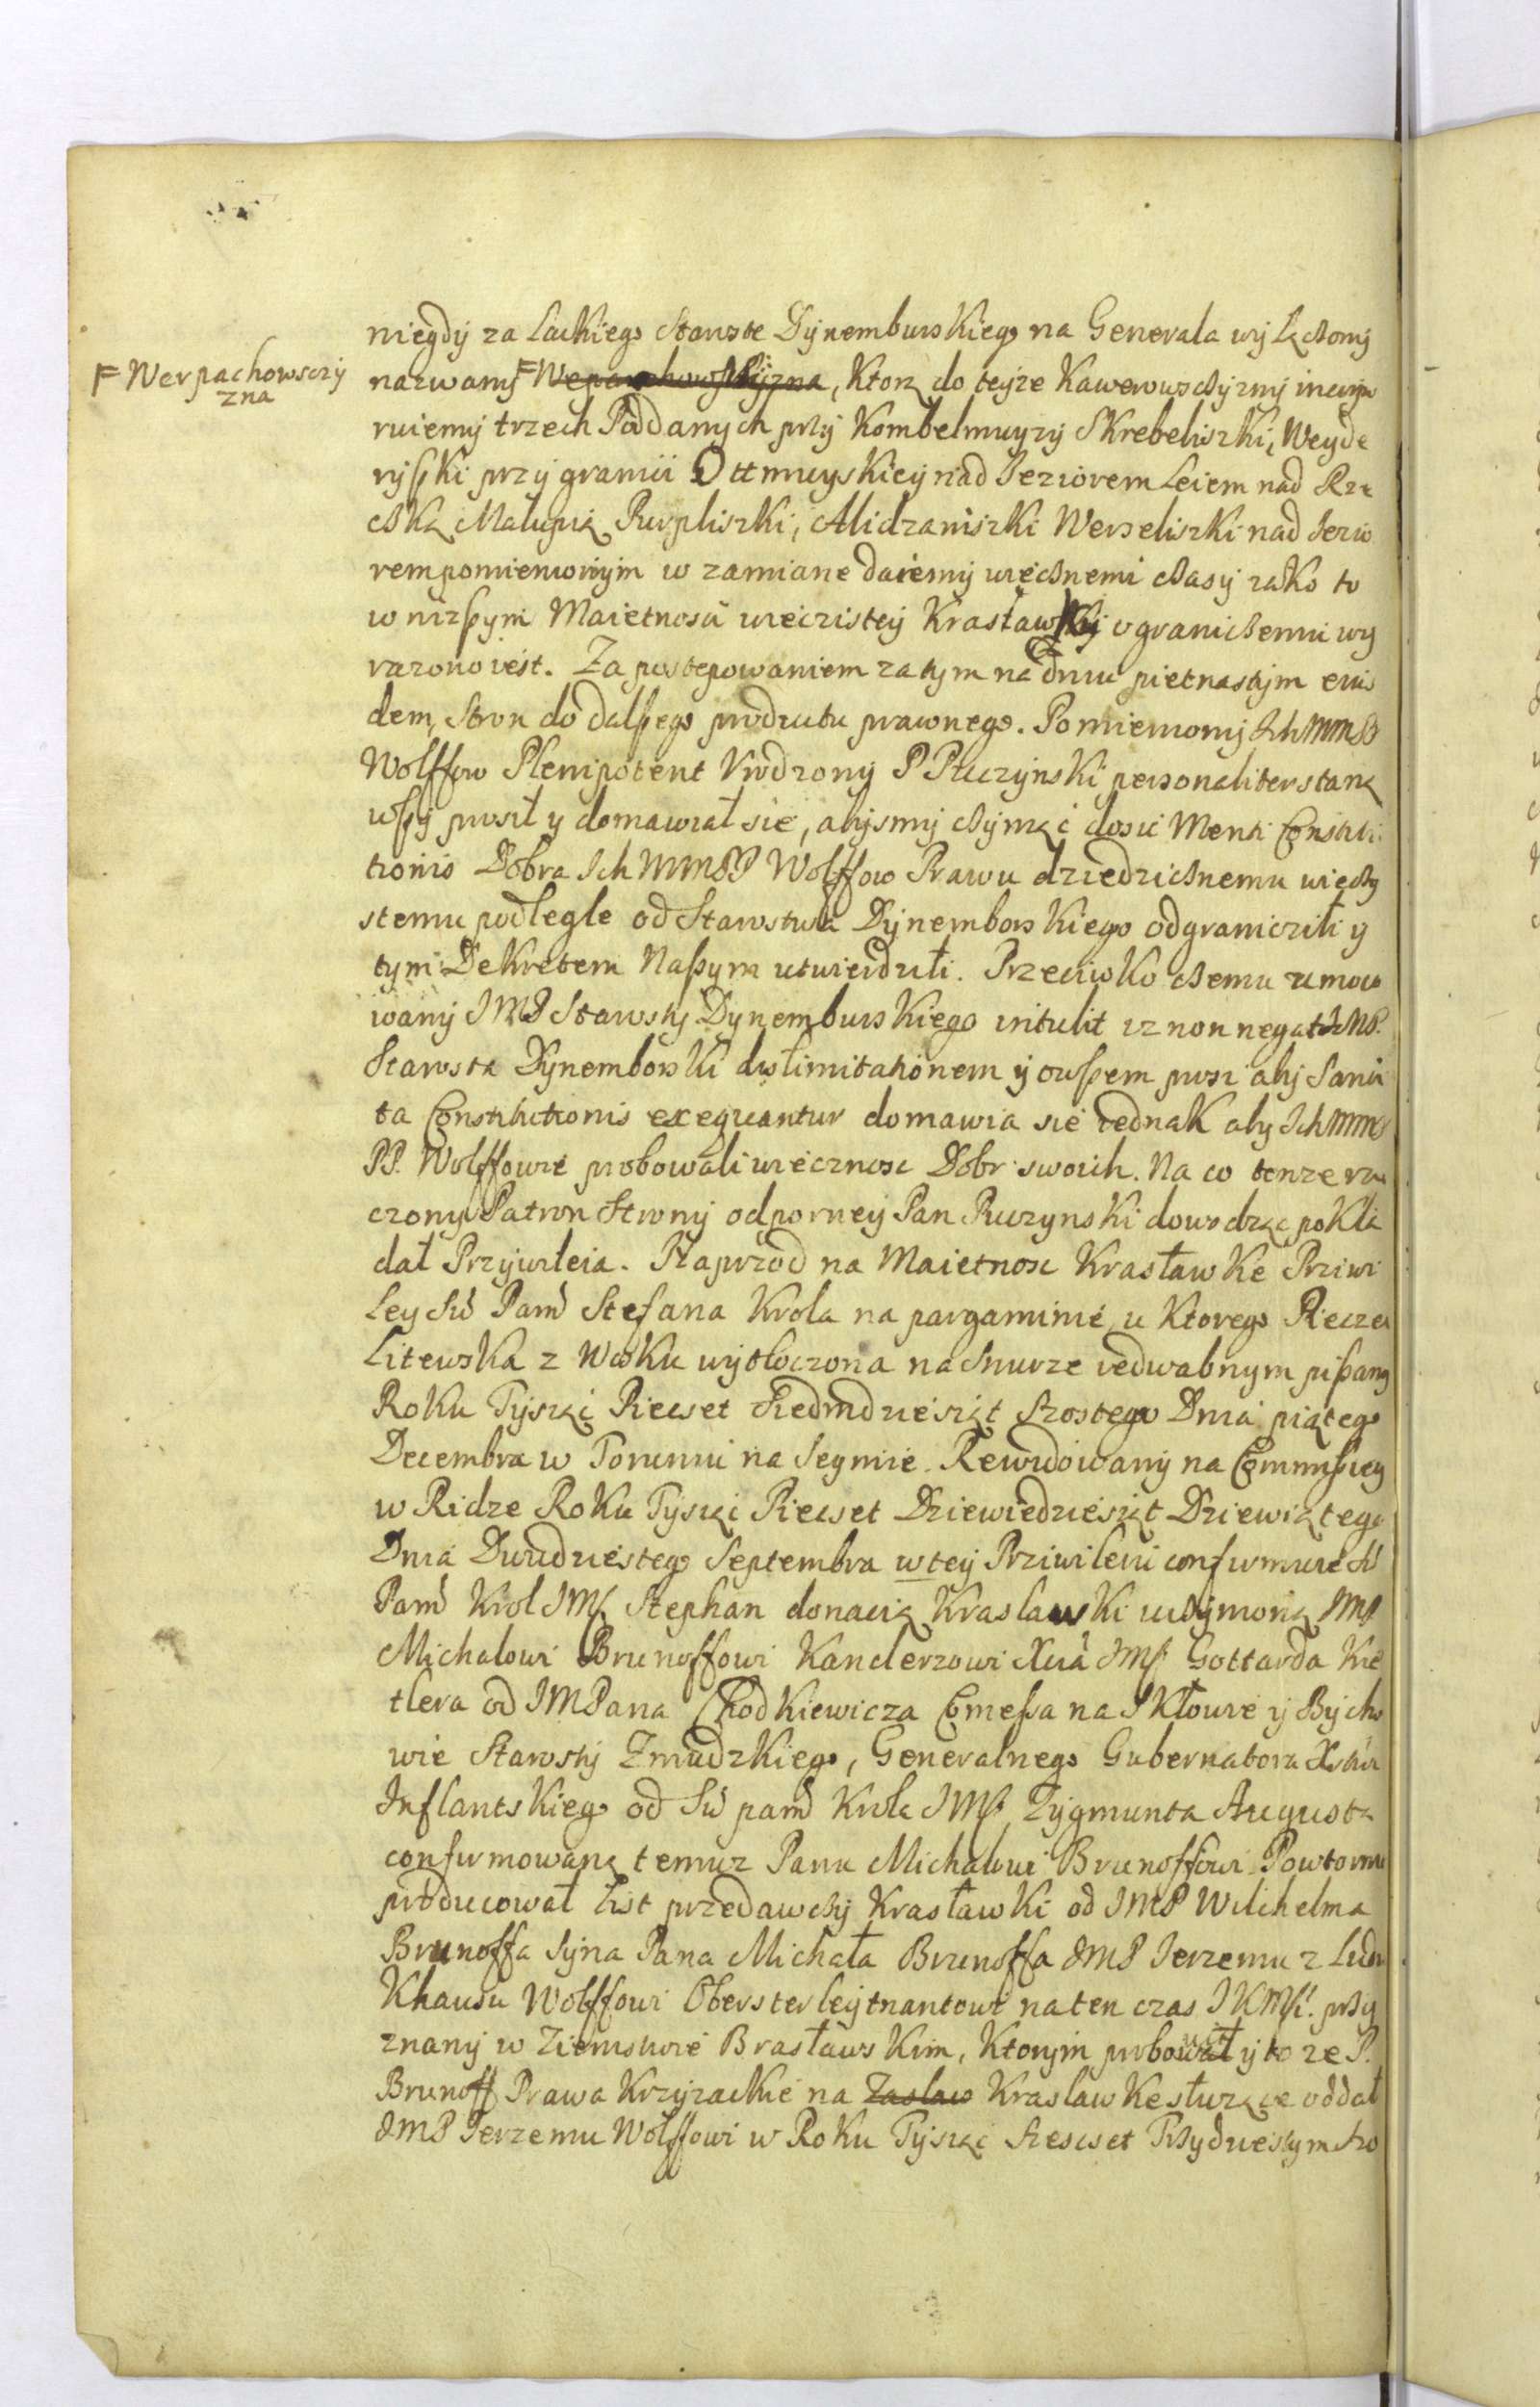 niegdy za Lackiego Starostę Dynemburskiego na Generała wyłączony
F Werpachowsczy
zna
nazwany F Weparchowszczyzna, Ktorą do teyże Kawerowszczyzny incorpo
ruiemy trzech Poddanych przy Kombelmuyzy Skrebeliszki, Weyde
ryszki przy granicii Ottmuyskiey nad Jeziorem Leiem nad Rze
czką Malupią Purpliszki, Alidzaniszki Werseliszki nad Jezio
rem pomienionym w zamianę daiemy wiecznemi czasy iako to
w niższym Maiętnosci wieczistey Krasławki ograniczeniu wy
rażono iest. Za postępowaniem zatym na dniu piętnastym eius
dem, Stron do dalszego produktu prawnego. Pomieniony IchMMPP
Wolffow Plenipotent Vrodzony P Ruczynski personaliter staną
wszy prosił y domawiał się, abysmy czyniąc dosić Menti Constitu
tionis Dobra Ich MMPP Wolffow Prawu dziedzicznemu wieczy
stemu podległe od Starostwa Dynemborskiego odgraniczili y
tym Dekretem Naszym utwierdzili. Przeciwko czemu umoco
wany JMP Starosty Dynemburskiego intulit iz non negat JeMP.
Starosta Dynemborski dislimitationem y owszem prosi aby Sanci
ta Constitutionis exequantur domawia się iednak aby IchMM
PP. Wolffowie probowali wieczność Dobr swoich. Na co tenze rze
czony Patron Strony odporney Pan Ruczynski dowodząc pokła
dał Przywileia. Naprzod na Maietnosc Krasławkę Priwi
ley Sw Pam Stefana Krola na pargaminie, u Ktorego Pieczęć
Litewska z Wosku wytłoczona na Snurze iedwabnym pisany
Roku Tysiąc Piecset Siedmdziesiąt Szostego Dnia piątego
Decembra w Toruniu na Seymie. Rewidowany na Commissiey
w Ridze Roku Tysiąc Piecset Dziewiedziesiąt Dziewiątego
Dnia Dwudziestego Septembra w tey Priwileiu confirmuie S
Pam Krol JMs Stephan donacią Kraslawki uczynioną JMP
Michalowi Brunoffowi Kanclerzowi Xcia JMs Gottarda Kie
tlera od JMPana Chodkiewicza Comessa na Skłowie y Bycho
wie Starosty Zmudzkiego, Generalnego Gubernatora Xstwa
Inflantskiego od Sw pam Krola JMs, Zygmunta Augusta
confirmowaną temuz Panu Michałowi Brunoffowi. Powtornie
producował List przedawczy Krasławki od JMP Wilchelma
Brunoffa Syna Pana Michała Brunoffa JMP Jerzemu z Ludin
Khausu Wolffowi Obersterleytnantowi na ten czas JKMsci. przy
znany w Ziemstwie Brasławskim, Ktorym probował y to ze P.
Brunoff Prawa Krzyżackie na Zaslaw Kraslawkę służące oddał
JMP Jerzemu Wolffowi w Roku Tysiąc Szescset Trzydziestym Szo